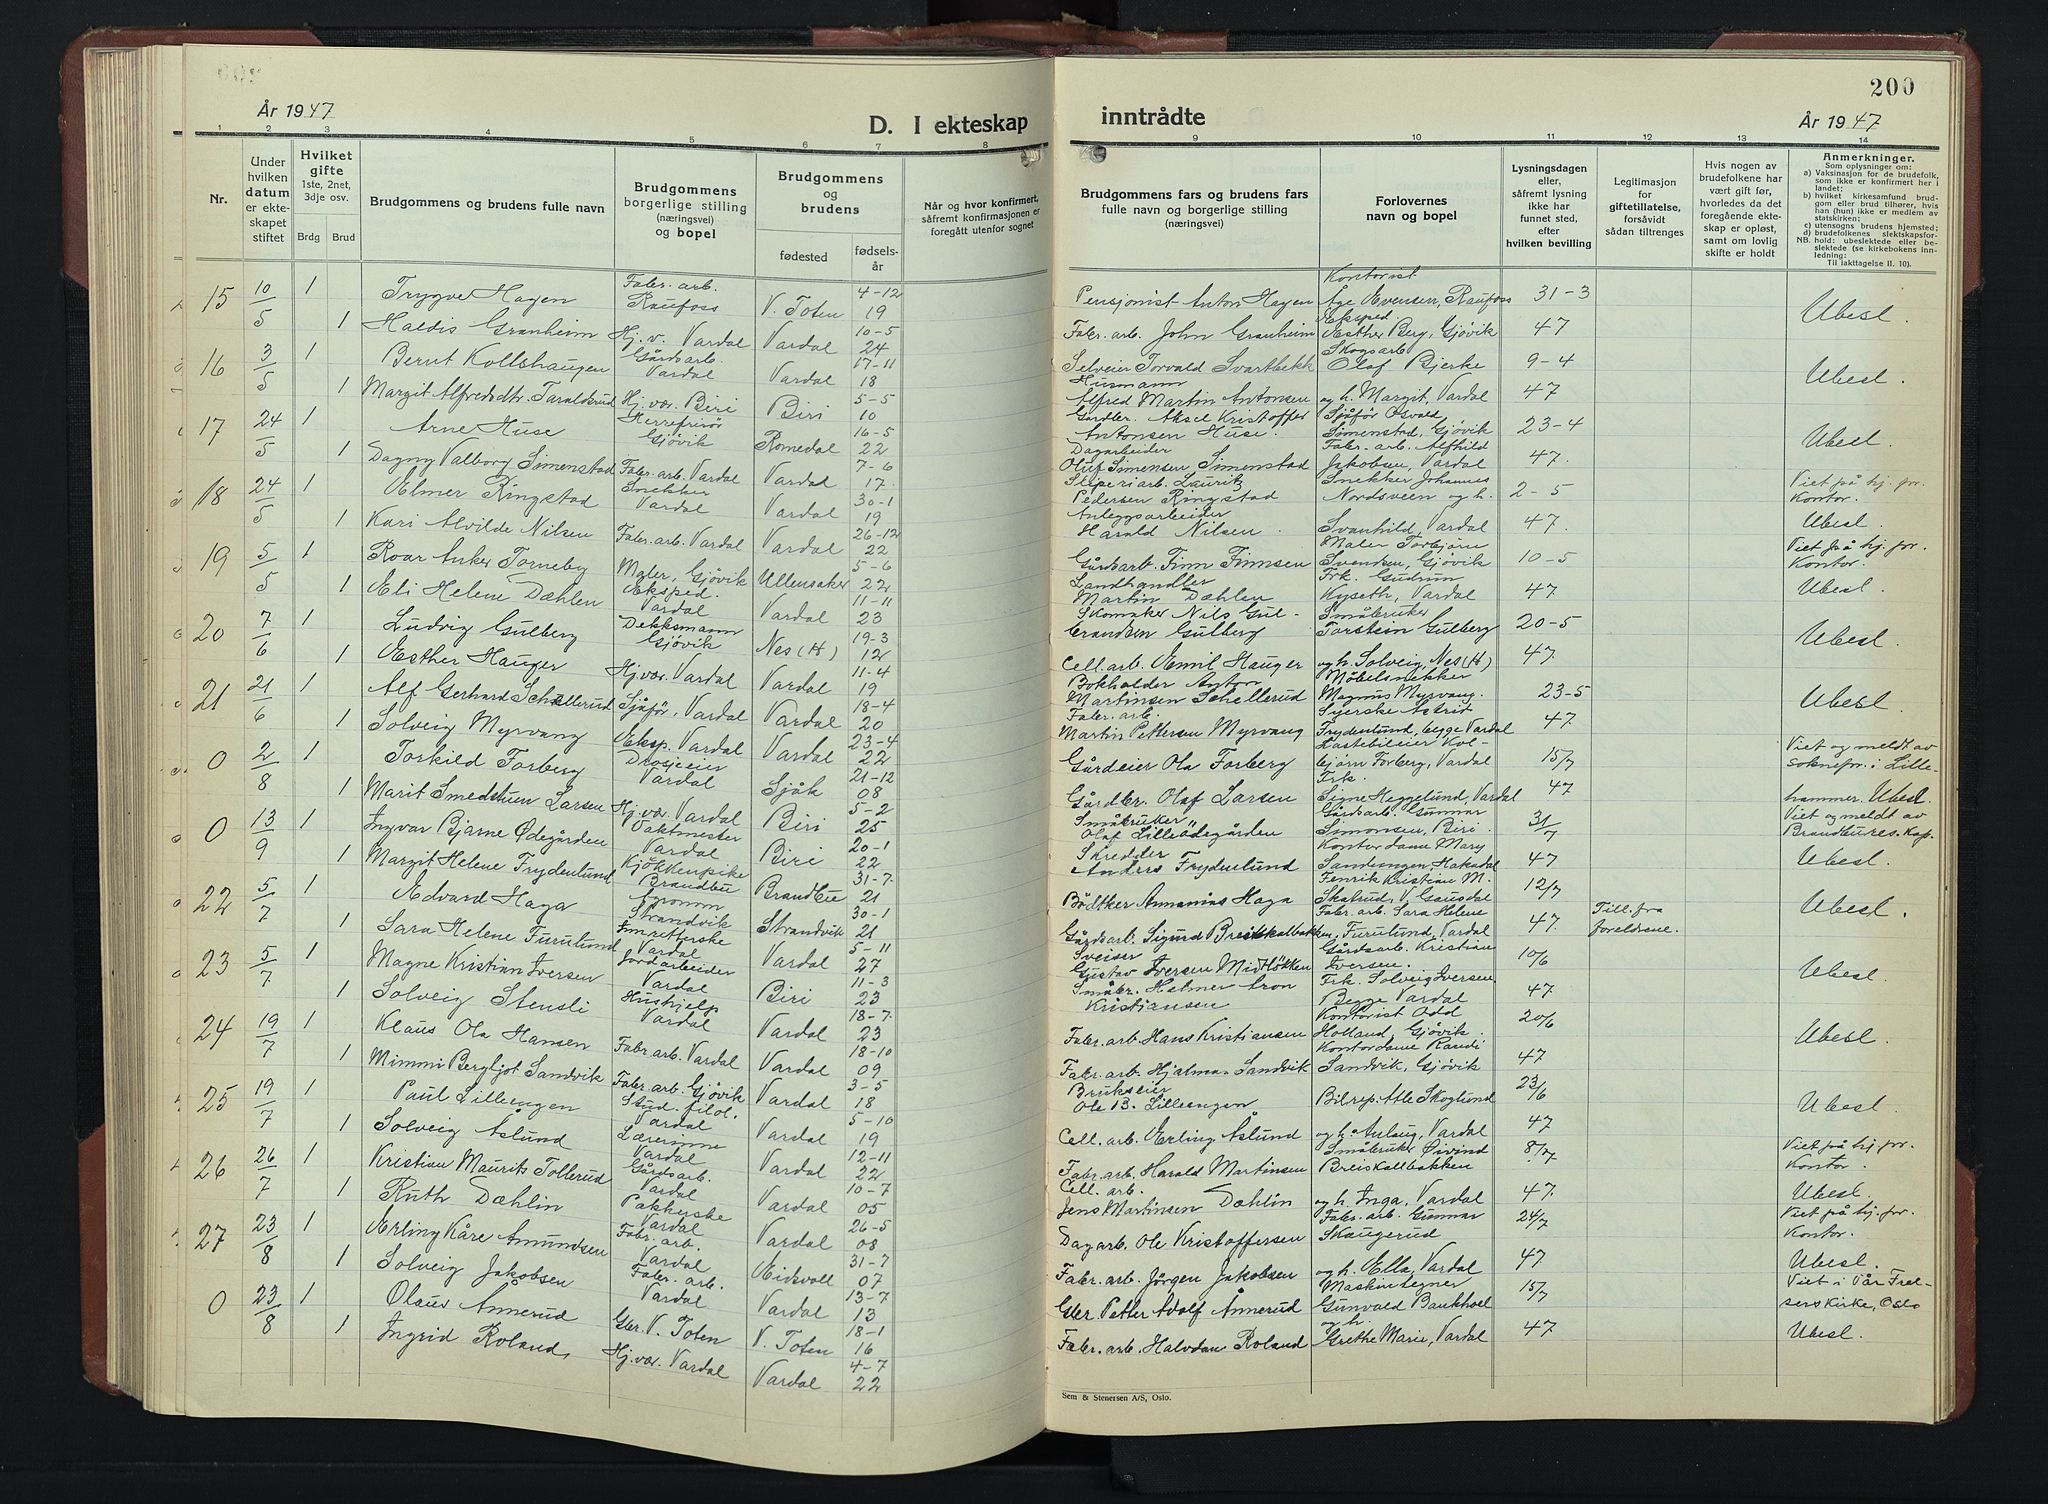 År 1947
D. I ekteskap
1 2 3 4 5 6 7 8
Nr.
Under hvilken datum er ekteskapet stiftet
Hvilket gifte
1ste, 2net, 3dje osv.
Brdg Brud
Brudgommens og brudens fulle navn
Brudgommens borgerlige stilling (næringsvei) og bopel
Brudgommens og brudens
fødested
fødsels-år
Når og hvor konfirmert, såfremt konfirmasjonen er foregått utenfor sognet
15 10/5 1 Trygve Hagen Fabr. arb. Raufoss V. Toten 4-12 19
1 Haldis Granheim Hj. v. Vardal Vardal 10-5 24
16 3/5 1 Bernt Kollshaugen Gårdsarb. Vardal Vardal 17-11 18
1 Margit Alfredsdtr. Taraldsrud Hj. vær. Biri Biri 5-5 10
17 24/5 1 Arne Huse Herrefrisør Gjøvik Romedal 16-5 22
1 Dagny Valborg Simenstad Fabr. arb. Vardal Vardal 7-6 17
18 24/5 1 Elmer Ringstad Snekker Vardal Vardal 30-1 19
1 Kari Alvilde Nilsen Fabr. arb. Vardal Vardal 26-12 22
19 5/5 1 Roar Anker Torneby Maler, Gjøvik Ullensaker 5-6 22
1 Eli Helene Dæhlen Eksped. Vardal Vardal 11-11 23
20 7/6 1 Ludvig Gulberg Dekksmann Gjøvik Nes (H) 19-3 12
1 Esther Hauger Hj. vær. Vardal Vardal 11-4 19
21 21/6 1 Alf Gerhard Schellerud Sjåfør, Vardal Vardal 18-4 20
1 Solveig Myrvang Eksp. Vardal Vardal 23-4 22
0 2/8 1 Torkild Forberg Drosjeeier Vardal Sjåk 21-12 08
1 Marit Smedstuen Larsen Hj. vær. Vardal Biri 5-2 25
0 13/9 1 Ingvar Bjarne Ødegården Vaktmester Vardal Biri 20-1 22
1 Margit Helene Frydenlund Kjøkkenpike Brandbu Brandbu 31-7 21
22 5/7 1 Edvard Haga Agronom Strandvik Strandvik 30-1 21
1 Sara Helene Furulund Innretterske Vardal Vardal 5-11 27
23 5/7 1 Magne Kristian Iversen Jordarbeider Vardal Biri 11-3 23
1 Solveig Stensli Hushjelp Vardal Vardal 18-7 23
24 19/7 1 Klaus Ola Hansen Fabr. arb. Vardal Vardal 18-10 09
1 Mimmi Bergljot Sandvik Fabr. arb. Gjøvik Vardal 3-5 18
25 19/7 1 Paul Lillengen Stud. filol. Vardal Vardal 5-10 19
1 Solveig Åslund Lærerinne Vardal Vardal 12-11 22
26 26/7 1 Kristian Maurits Tollerud Gårdsarb. Vardal Vardal 10-7 05
1 Ruth Dæhlin Pakkerske Vardal Vardal 26-5 08
27 23/8 1 Erling Kåre Amundsen Fabr. arb. Vardal Eidsvoll 31-7 07
1 Solveig Jakobsen Fabr. arb. Vardal Vardal 13-7 13
0 23/8 1 Olaus Annerud Gbr. V. Toten V. Toten 18-1 16
1 Ingrid Roland, Hj. vær. Vardal Vardal 4-7 22
200
inntrådte
År 1947
9 10 11 12 13 14
Brudgommens fars og brudens fars fulle navn og borgerlige stilling (næringsvei)
Forlovernes navn og bopel
Lysningsdagen eller, såfremt lysning ikke har funnet sted, efter hvilken bevilling
Legitimasjon for giftetillatelse, forsåvidt sådan tiltrenges
Hvis nogen av brudefolkene har vært gift før, hvorledes da det foregående ekteskap er opløst, samt om lovlig skifte er holdt
Anmerkninger.
Som oplysninger om:
a) Vaksinasjon for de brudefolk, som ikke er konfirmert her i landet;
b) hvilket kirkesamfund brudgom eller brud tilhører, hvis han (hun) ikke er medlem av statskirken;
c) utensogns brudens hjemsted;
d) brudefolkenes slektskapsforhold: ubeslektede eller beslektede (se kirkebokens innledning:
NB.
Til iakttagelse II. 10).
Pensjonist Anton Hagen Kontorist Åge Evensen, Raufoss 31-3 Ubesl.
Fabr. arb. John Granheim Eksped. Esther Berg, Gjøvik 47
Selveier Torvald Svartbekk Skogsarb Olaf Bjerke 9-4 Ubesl.
Husmann Alfred Martin Antonsen og h. Margit, Vardal 47
Gårdbr. Aksel Kristoffer Antonsen Huse. Sjåfør Osvald Simenstad, Gjøvik 23-4 Ubesl.
Dagarbeider Oluf Simensen Simenstad Fabr. arb. Alfhild Jakobsen, Vardal 47.
Sliperiarb. Lauritz Pedersen Ringstad Snekker Johannes Nordsveen og h. 2-5 Viet på hj. for. Kontor.
Anleggsarbeider Harald Nilsen. Svanhild, Vardal 47. Ubesl.
Gårdsarb. Finn Finnsen Maler Torbjørn Svendsen, Gjøvik 10-5 Viet på hj. for. Kontor.
Landhandler Martin Dæhlen Frk. Gudrun Kyseth, Vardal 47 Ubesl.
Skomaker Nils Gulbrandsen Gulberg Småbruker Torstein Gulberg 20-5 Ubesl.
Cell. arb. Emil Hauger og h. Solveig, Nes (H) 47
Bokholder Anton Martinsen Schellerud Møbelsnekker Magnus Myrvang. 23-5 Ubesl.
Fabr. arb. Martin Pettersen Myrvang Syerske Astrid Frydenlund, begge Vardal 47.
Gårdeier Ola Forberg Lastebileier Kolbjørn Forberg, Vardal 15/7 Viet og meldt av soknepr. i Lillehammer.
Gårdbr. Olaf Larsen Frk. Signe Heggelund, Vardal 47 Ubesl.
Småbruker Olaf Lilleødegården Gårdsarb. Gunnar Simonsen, Biri. 31/7 Viet og meldt av Brandbu res. kap.
Skredder Anders Frydenlund Kontordame Mary Sandengen Hakadal 47 Ubesl.
Bødtker Annanias Haga Fenrik Kristian M. Skatrud, V. Gausdal 12/7 Ubesl.
Gårdsarb. Sigurd Breiskallbakken, Fabr. arb. Sara Helene Furulund, Vardal 47. Till. fra foreldrene.
Sveiser Gustav Iversen Midtløkken Gårdsarb. Kristian Iversen. 10/6 Ubesl.
Småbr. Helmer Aron Kristiansen Frk. Solveig Iversen Begge Vardal 47
Fabr. arb. Hans Kristiansen Kontorist Odd Holland, Gjøvik. 20/6 Ubesl.
Fabr. arb. Hjalmar Sandvik Kontordame Randi Sandvik, Gjøvik 47
Brukseier Ole B. Lillengen Bilrep. Atle Skoglund 23/6 Ubesl.
Cell. arb. Erling Åslund og h. Aslaug, Vardal 47
Fabr. arb. Harald Martinsen Småbruker Øivind Breiskallbakken 8/7 Viet på hj. for. Kontor.
Cell. arb. Jens Martinsen Dæhlin og h. Inga, Vardal 47. Ubesl.
Dagarb. Ole Kristoffersen Fabr. arb. Gunnar Skaugerud 24/7 Viet på hj. for. Kontor.
Fabr. arb. Jørgen Jakobsen og h. Ella, Vardal 47. Ubesl.
Gbr. Petter Adolf Annerud Maskintegner Gunvald Bankhoel 15/7 Viet i Vår Frelsers Kirke, Oslo
Fabr. arb. Halvdan Roland og h. Grethe Marie, Vardal 47 Ubesl.
Sem & Stenersen A/S, Oslo.